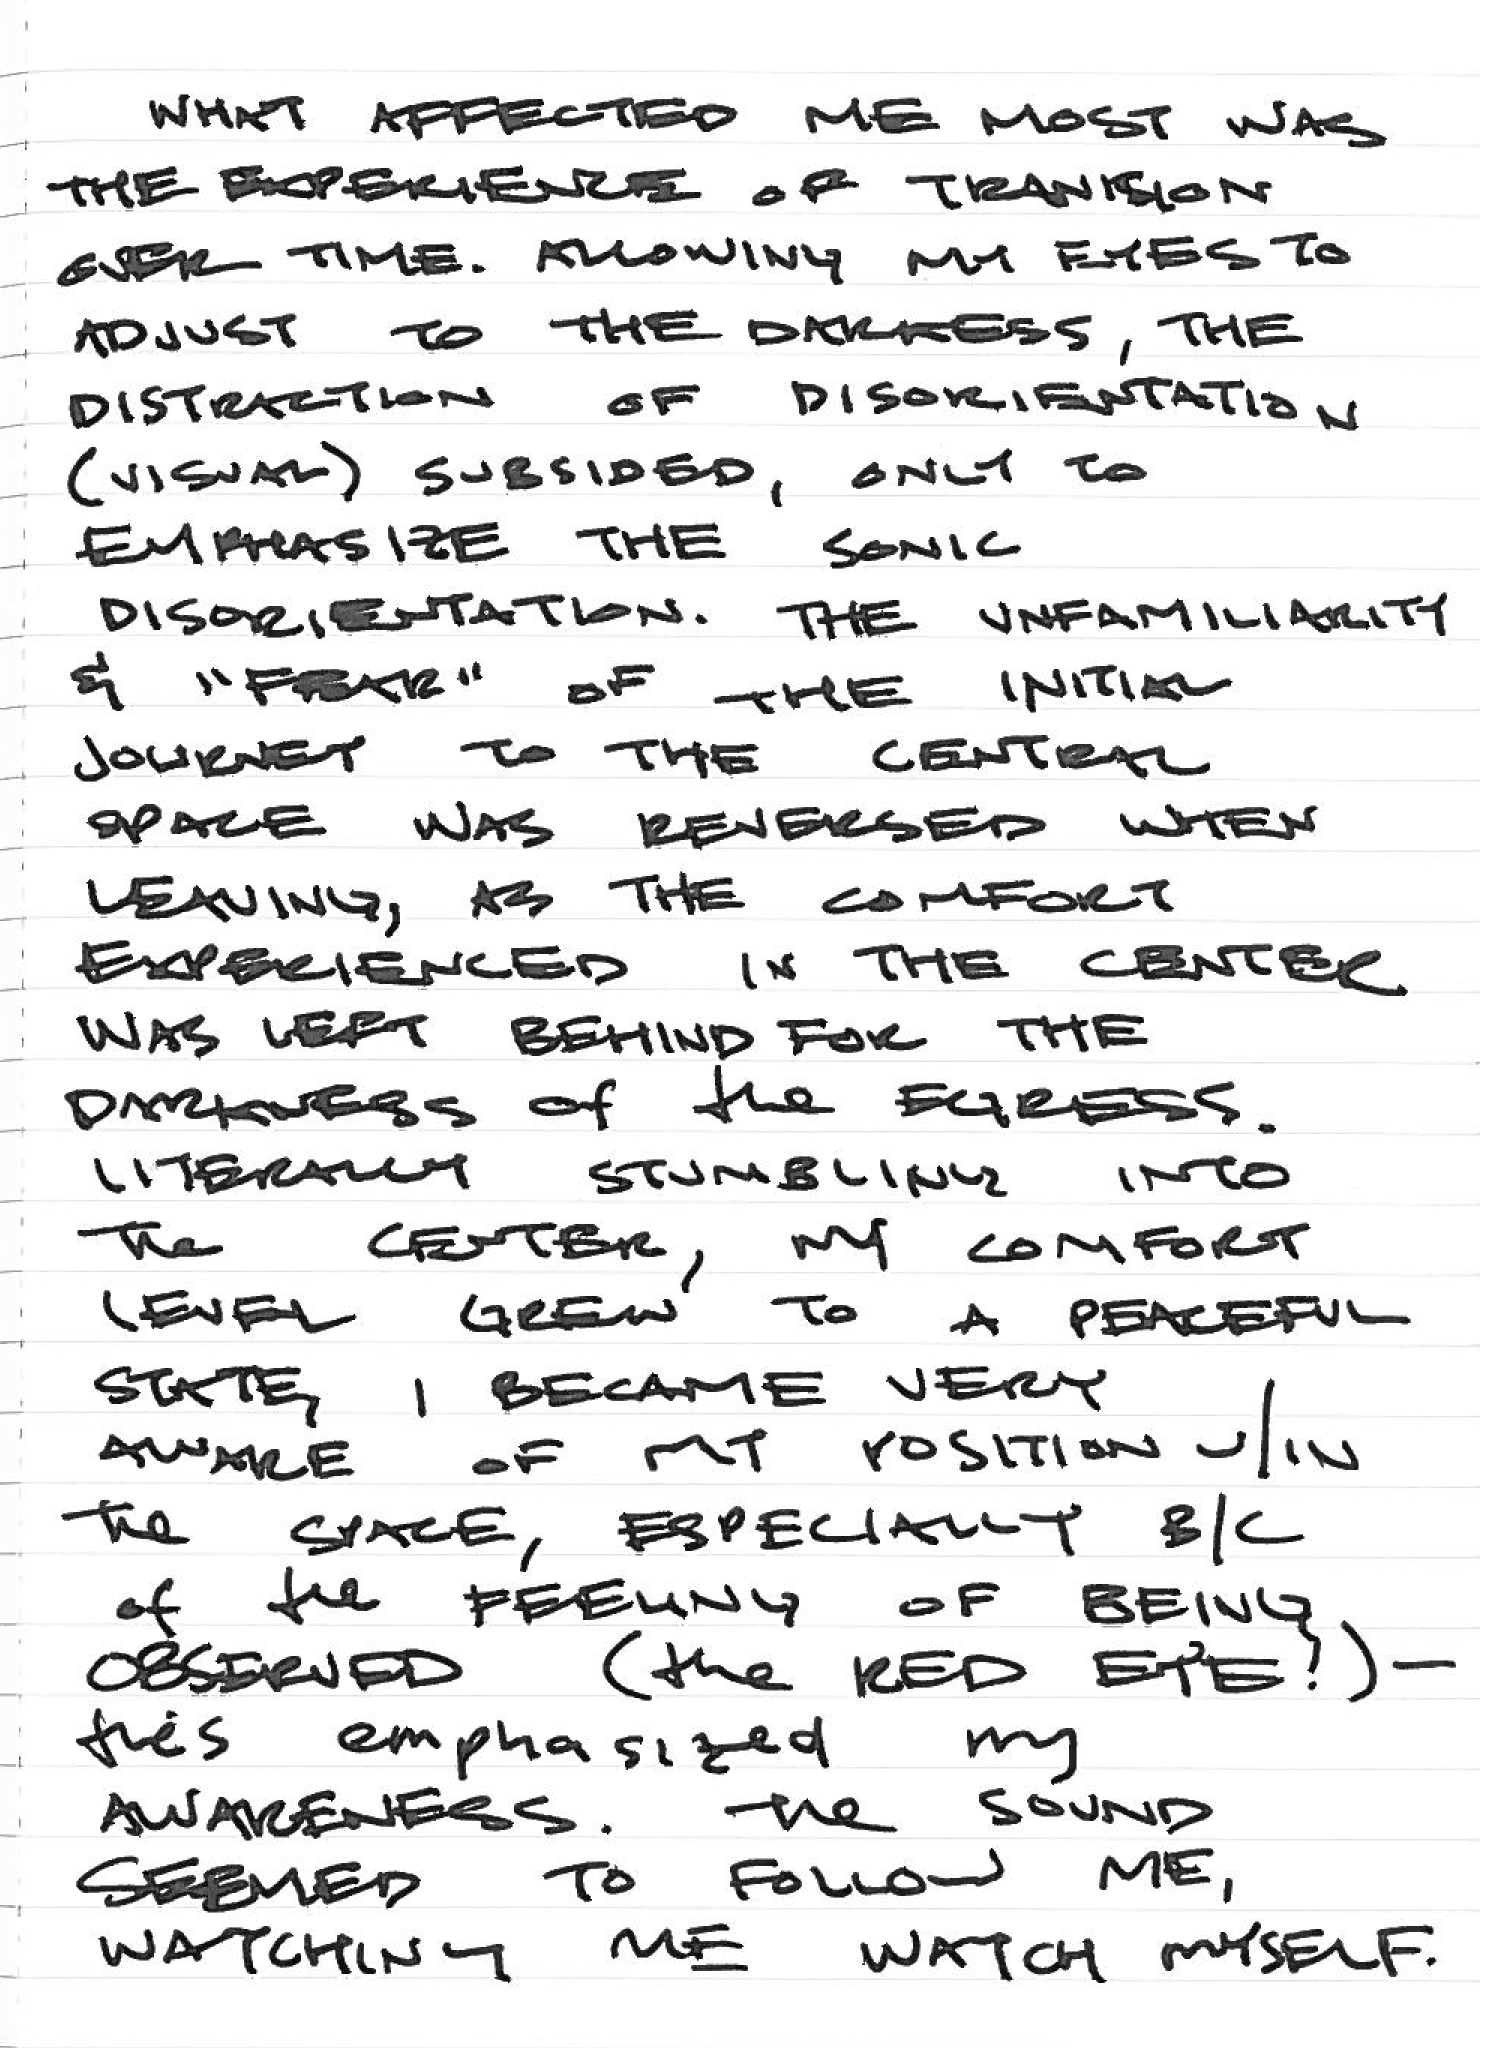 WHAT AFFECTED ME MOST WAS
THE EXPERIENCE OF TRANISION
OVER TIME. ALLOWING MY EYES TO
ADJUST TO THE DARKESS, THE
DISTRACTION OF DISORIENTATION
(VISUAL) SUBSIDED, ONLY TO
EMPHASIZE THE SONIC
DISORIENTATION. THE UNFAMILIARITY
& "FEAR" OF THE INITIAL
JOURNEY TO THE CENTRAL
SPACE WAS REVERSED WHEN
LEAVING, AS THE COMFORT
EXPERIENCED IN THE CENTER
WAS LEFT BEHIND FOR THE
DARKNESS of the EGRESS.
LITERALLY STUMBLING INTO
The CENTER, MY COMFORT
LEVEL GREW TO A PEACEFUL
STATE, I BECAME VERY
AWARE OF MY POSITION W/IN
The SPACE, ESPECIALLY B/C
of the FEELING OF BEING
OBSERVED (the RED EYE?) —
this emphasized my
AWARENESS. The SOUND
SEEMED TO FOLLOW ME,
WATCHING ME WATCH MYSELF.